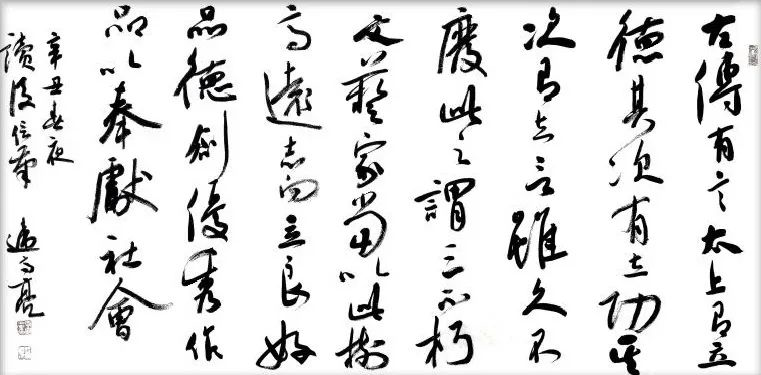 左傳有言太上有立
德其次有立功其
次有立言雖久不
廢此之謂三不朽
文藝家當以此樹
高遠志向立良好
品德創優秀作
品以奉獻社會
辛丑春夜
讀後信筆
高亮